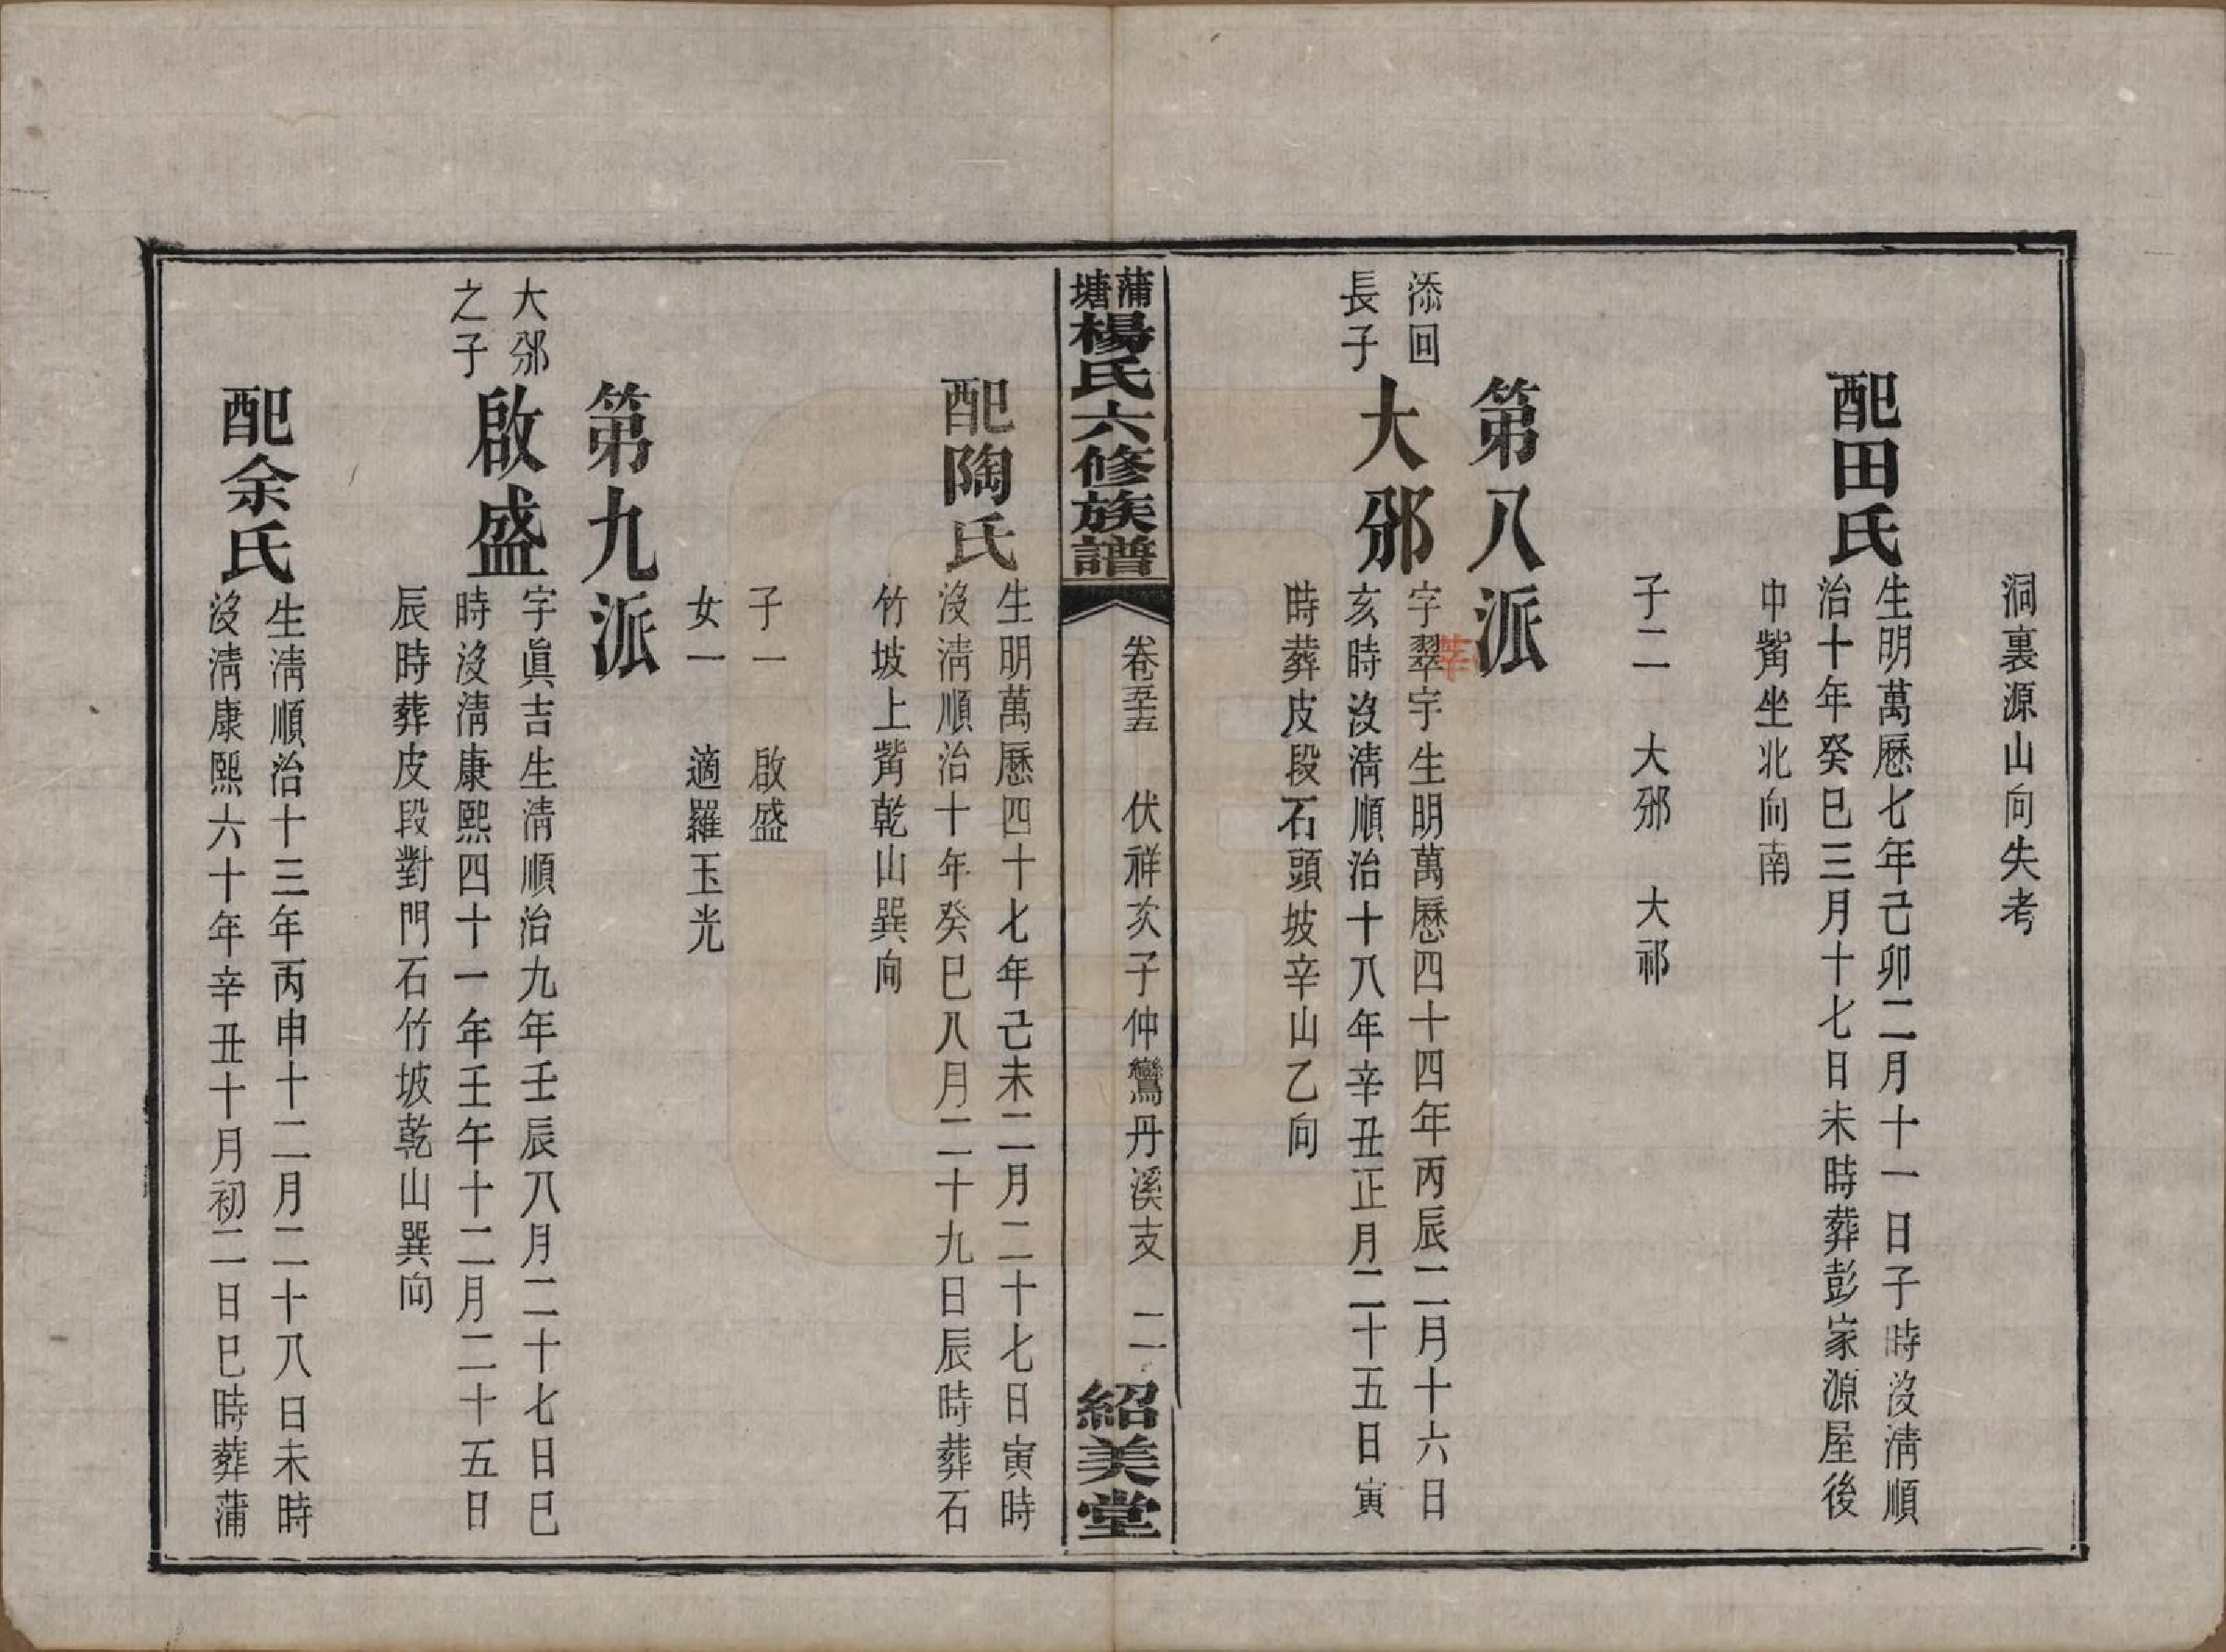 洞裏源山向失考
配田氏
生明萬曆七年己卯二月十一日子時沒清順
治十年癸巳三月十七日未時葬彭家源屋後
中觜坐北向南
子二 大邠 大祁
第八派
添回
長子
大邠
字翠宇生明萬曆四十四年丙辰二月十六日
亥時沒清順治十八年辛丑正月二十五日寅
時葬皮段石頭坡辛山乙向
蒲塘楊氏六修族譜
卷五十五 伏祥次子仲鸞丹溪支 二
紹美堂
配陶氏
生明萬曆四十七年己未二月二十七日寅時
沒清順治十年癸巳八月二十九日辰時葬石
竹坡上觜乾山巽向
子一 啟盛
女一 適羅玉光
第九派
大邠
之子
啟盛
字眞吉生清順治九年壬辰八月二十七日巳
時沒清康熙四十一年壬午十二月二十五日
辰時葬皮段對門石竹坡乾山巽向
配余氏
生清順治十三年丙申十二月二十八日未時
沒清康熙六十年辛丑十月初二日巳時葬蒲